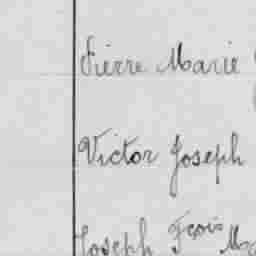 Pierre Marie
Victor Joseph
Joseph Fçois Ma